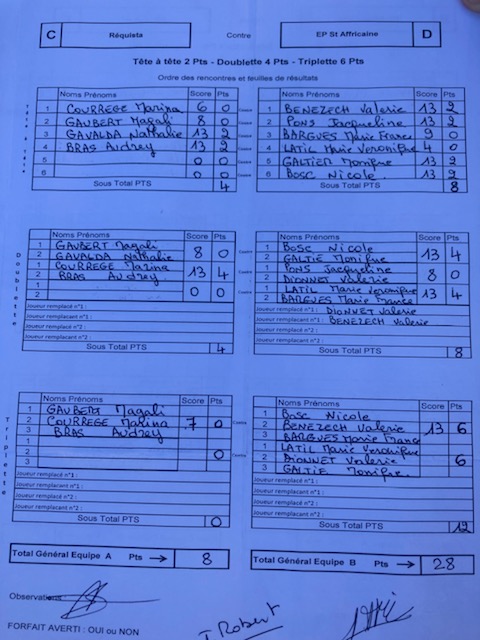 C Réquista Contre EP St Affricaine D
Tête à tête 2 Pts - Doublette 4 Pts - Triplette 6 Pts
Ordre des rencontres et feuilles de résultats
Tête à tête
Noms Prénoms Score Pts Noms Prénoms Score Pts
1 COURREGE Marina 6 0 Contre 1 BENEZECH Valerie 13 2
2 GAUBERT Magali 8 0 Contre 2 PONS Jacqueline 13 2
3 GAVALDA Nathalie 13 2 Contre 3 BARGUES Marie France 9 0
4 BRAS Audrey 13 2 Contre 4 LATIL Marie Veronique 4 0
5 0 0 Contre 5 GALTIER Monique 13 2
6 0 0 Contre 6 BOSC Nicole 13 2
Sous Total PTS 4 Sous Total PTS 8
Doublette
Noms Prénoms Score Pts Noms Prénoms Score Pts
1 GAUBERT Magali 1 BOSC Nicole
2 GAVALDA Nathalie 8 0 Contre 2 GALTIE Monique 13 4
1 COURREGE Marina 1 PONS Jacqueline
2 BRAS Audrey 13 4 Contre 2 DIONNET Valerie 8 0
1 1 LATIL Marie Veronique
2 0 0 Contre 2 BARGUES Marie France 13 4
Joueur remplacé n°1 : Joueur remplacé n°1 : DIONNET Valerie
Joueur remplaçant n°1 : Joueur remplaçant n°1 : BENEZECH Valerie
Joueur remplacé n°2 : Joueur remplacé n°2 :
Joueur remplaçant n°2 : Joueur remplaçant n°2 :
Sous Total PTS 4 Sous Total PTS 8
Triplette
Noms Prénoms Score Pts Noms Prénoms Score Pts
1 GAUBERT Magali 1 BOSC Nicole
2 COURREGE Marina 7 0 Contre 2 BENEZECH Valerie 13 6
3 BRAS Audrey 3 BARGUES Marie France
1 1 LATIL Marie Veronique
2 0 Contre 2 DIONNET Valerie 6
3 3 GALTIE Monique
Joueur remplacé n°1 : Joueur remplacé n°1 :
Joueur remplaçant n°1 : Joueur remplaçant n°1 :
Joueur remplacé n°2 : Joueur remplacé n°2 :
Joueur remplaçant n°2 : Joueur remplaçant n°2 :
Sous Total PTS 0 Sous Total PTS 12
Total Général Equipe A Pts → 8 Total Général Equipe B Pts → 28
Observations :
FORFAIT AVERTI : OUI ou NON Robert